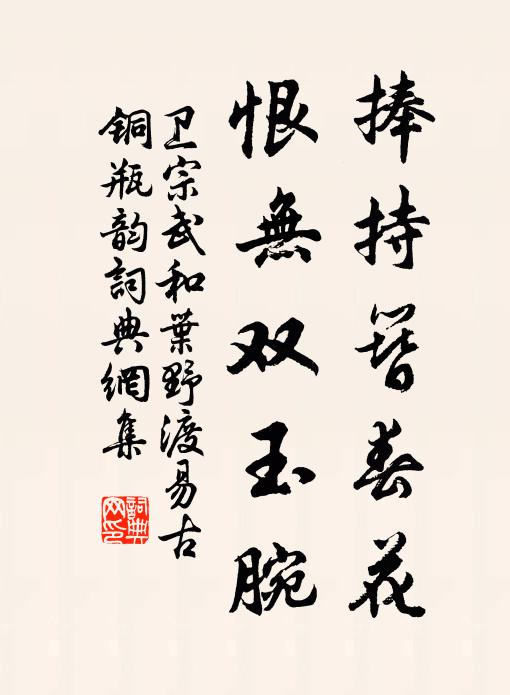 捧持簪春花
恨無双玉腕
卫宗武和葉野渡易古
铜瓶韵詞典網集
詞典網印